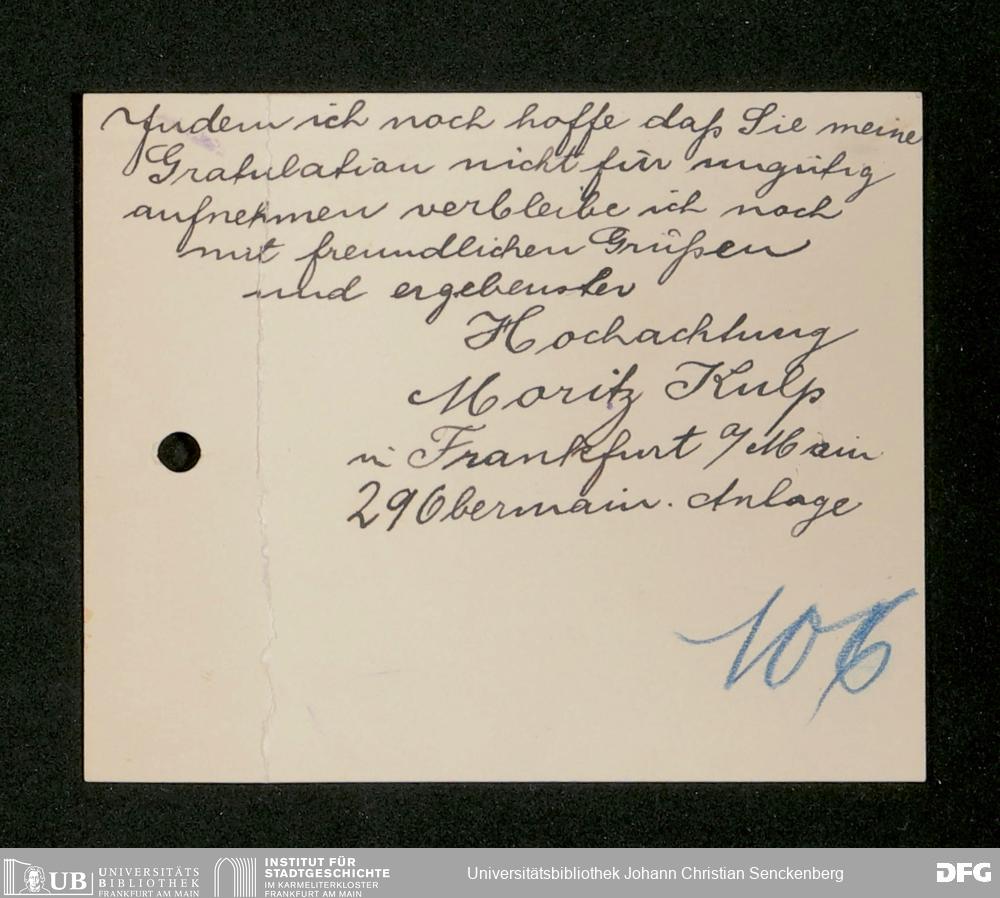 Indem ich noch hoffe daß Sie meine
Gratulation nicht für ungütig
aufnehmen verbleibe ich noch
mit freundlichen Grüßen
und ergebenster
Hochachtung
Moritz Kulp
in Frankfurt a/Main
29 Obermain. Anlage
106
UB UNIVERSITÄTS
BIBLIOTHEK
FRANKFURT AM MAIN
INSTITUT FÜR
STADTGESCHICHTE
IM KARMELITERKLOSTER
FRANKFURT AM MAIN
Universitätsbibliothek Johann Christian Senckenberg
DFG